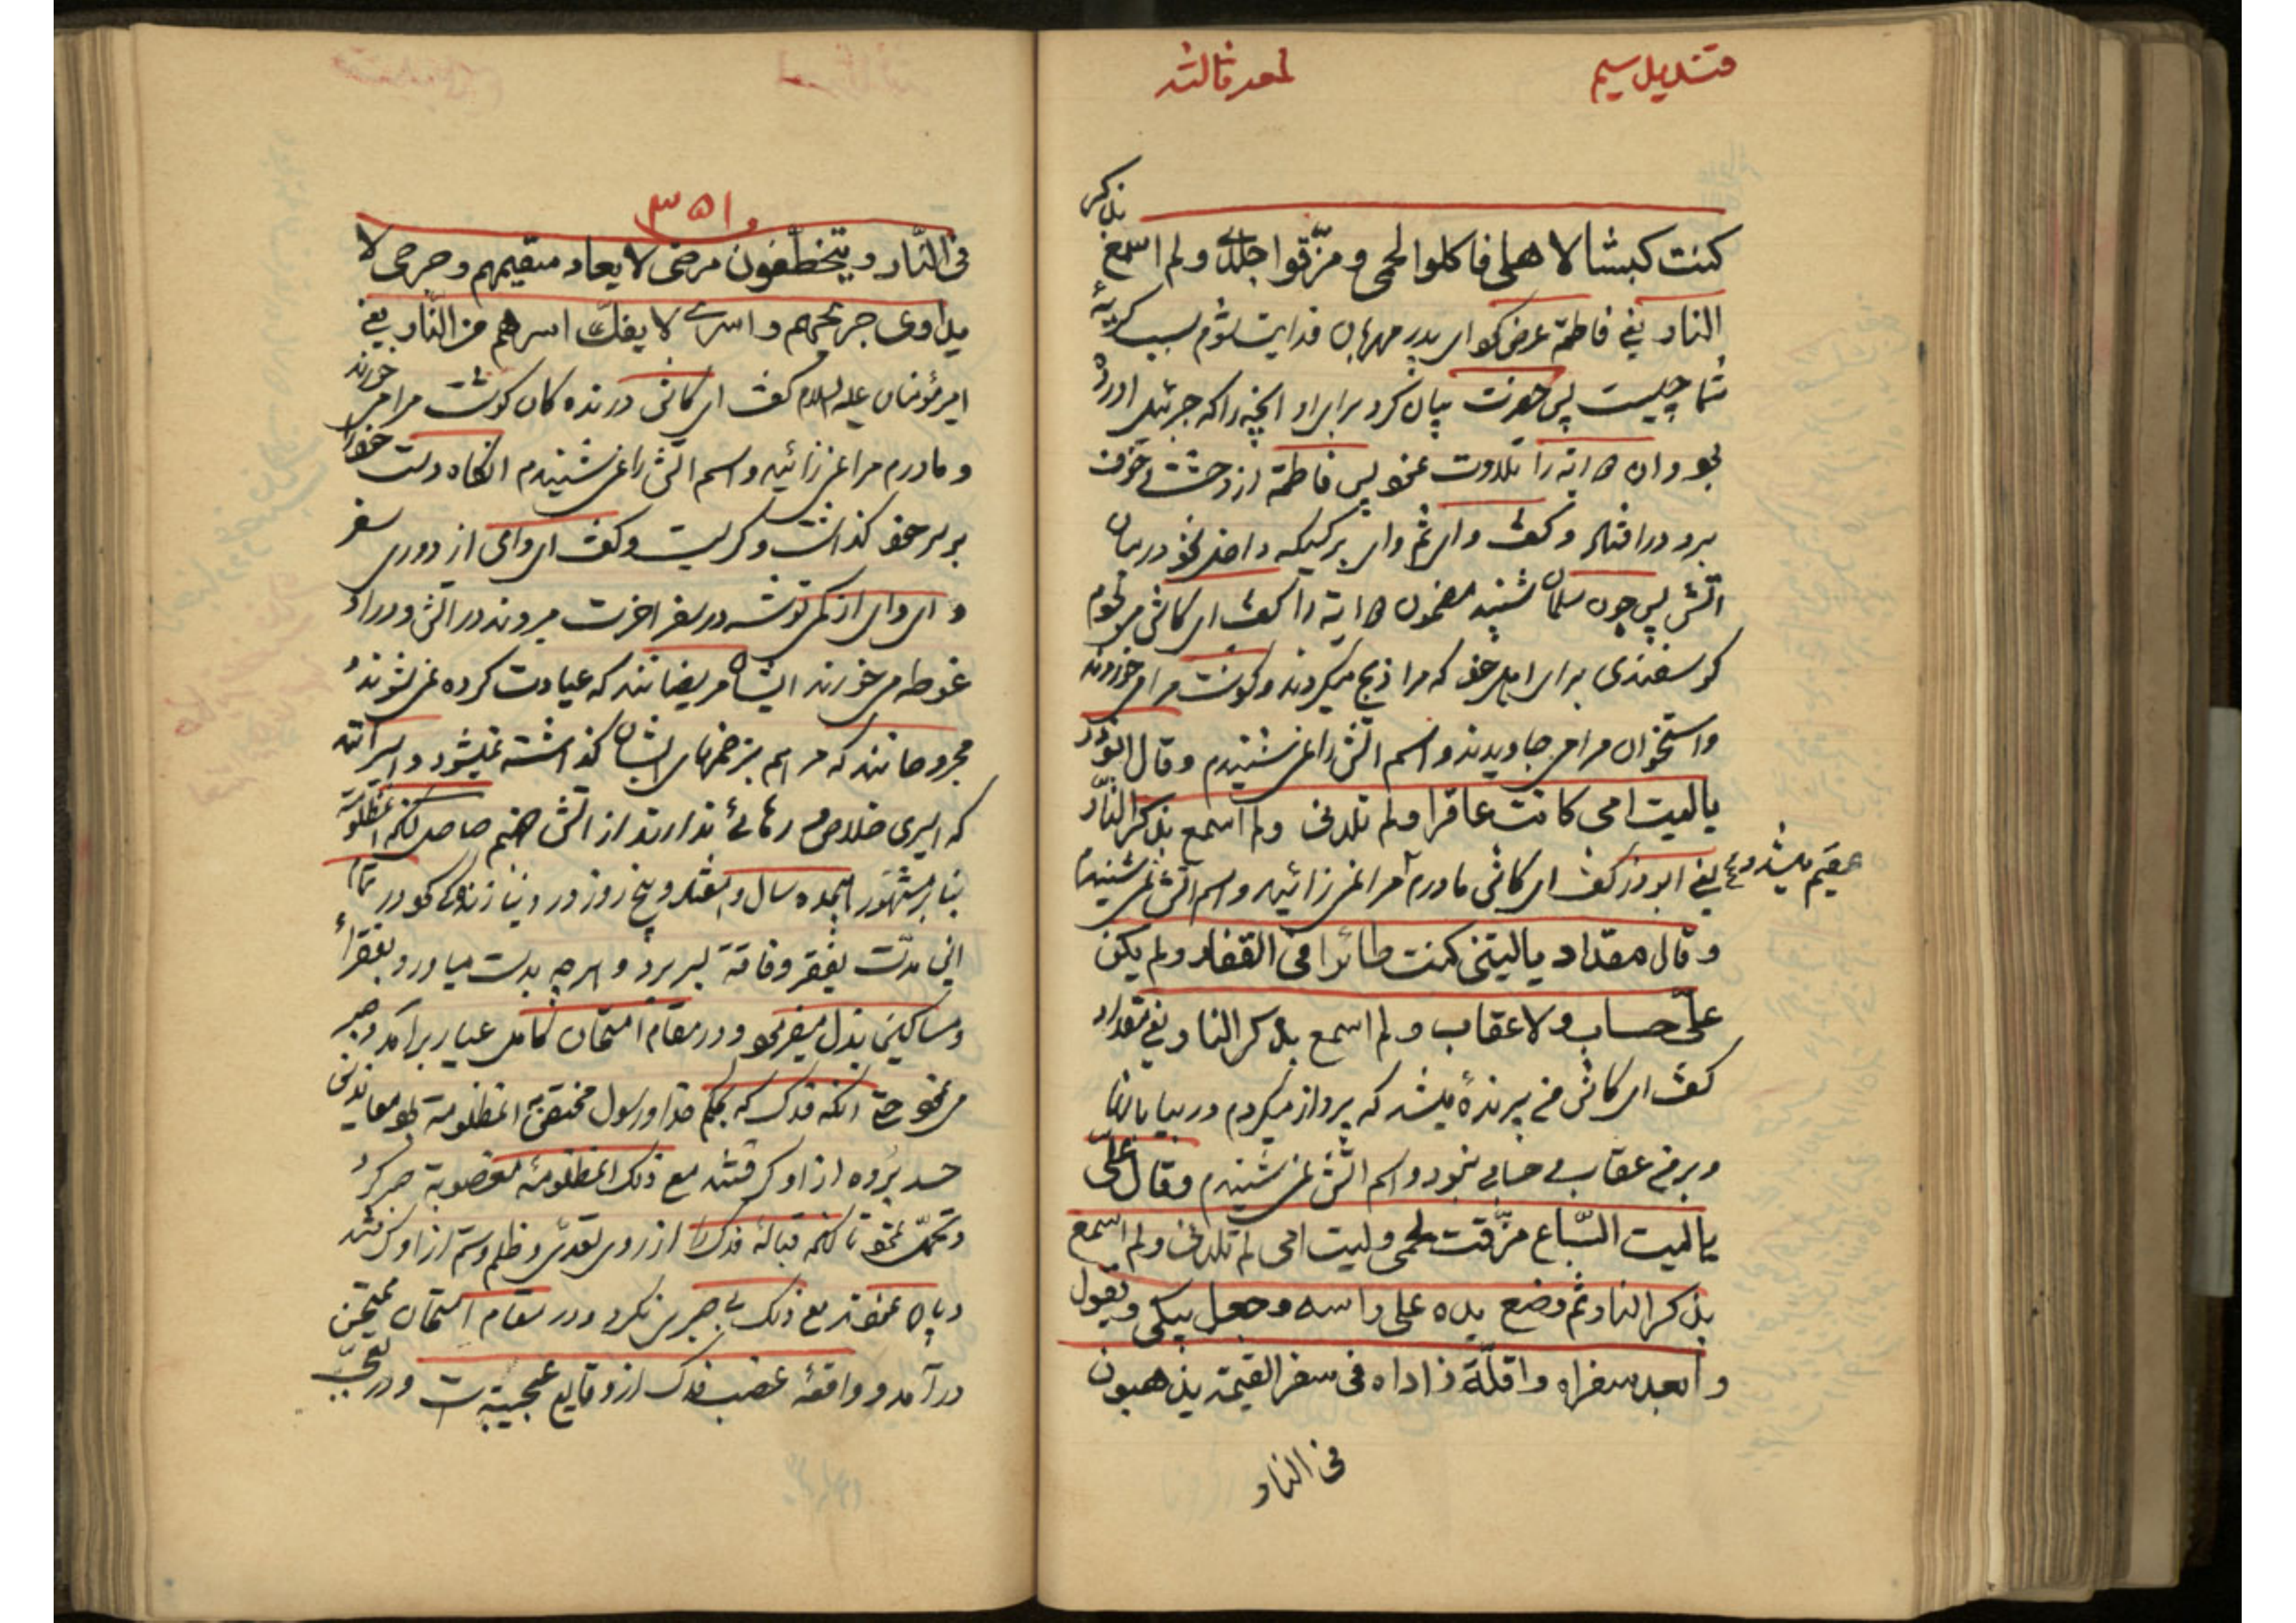 قندیل سیم
لمعه ثالثه
کنت کبشا لاهلی فاکلوا لحمی و مزّقوا جلدی و لم اسمع بذکر
النار یعنی فاطمة عرض کرد ای پدر مهربان فدایت شوم سبب کریهٔ
شما چیست پس حضرت بیان کرد برای او انچه را که جبرئیل اورده
بود و ان دو ایه را تلاوت نمود پس فاطمة از وحشت و خوف
برو درافتاد و کفت وای ثم وای بر کسیکه داخل شود در میان
اتش پس چون سلمان شنید مضمون دو ایة را کفت ای کاش من بودم
کوسفندی برای اهل خود که مرا ذبح میکردند و کوشت مرا می خوردند
و استخوان مرا می جاویدند و اسم اتش را نمی شنیدم و قال ابوذر
یا لیت امی کانت عاقرا و لم تلدنی و لم اسمع بذکر النّار
یعنی ابوذر کفت ای کاش مادرم مرا نمی زائید و اسم اتش نمی شنیدم
عقیم میشد و
و قال مقداد یا لیتنی کنت طائرا فی القفار و لم یکن
علیّ حساب و لا عقاب و لم اسمع بذکر النار یعنی مقداد
کفت ای کاش من پرندهٔ میشد که پرواز میکردم در بیابانها
و بر من عقاب و حسابی نبود و اسم اتش نمی شنیدم و قال علی
یا لیت السّباع مزّقت لحمی و لیت امی لم تلدنی و لم اسمع
بذکر النار ثم وضع یده علی راسه و جعل یبکی و یقول
وا بعد سفراه وا قلّة زاداه فی سفر القیمة یذهبون
فی النار
۳۵۱
فی النّار و یتخطّفون مرضی لا یعاد سقیمهم و جرحی لا
یداوی جریحهم و اسری لا یفکّ اسرهم من النّار یعنی
امیرمؤمنان علیه السلام کفت ای کاش درنده کان کوشت مرا می خوردند
و مادرم مرا نمی زائید و اسم اتش را نمی شنیدم انکاه دست خود را
بر سر خود کذاشت و کریست و کفت ای وای از دوری سفر
و ای وای از کمی توشه در سفر اخرت میروند در اتش و در او
غوطه می خورند ایشان مریضانند که عیادت کرده نمی شوند و
مجروحانند که مرهم بزخمهای ایشان کذاشته نمیشود و اسیرانند
که اسیری خلاص و رهائی ندارند از اتش جهنم حاصل انکه مظلومة
بنابر مشهور هیجده سال و هفتاد و پنج روز در دنیا زندکی کرد در تمام
این مدّت بفقر و فاقة بسر برد و هرچه بدست میاورد بفقراء
و مساکین بذل میفرمود و در مقام امتحان کامل عیار برامد و صبر
می نمود حتی انکه فدک که بحکم خدا و رسول مختص بان مظلومة بود معاندی
حسد برده از او کرفتند مع ذلک مظلومهٔ مغصوبة صبر کرد
و تحمّل نمود تا انکه قبالهٔ فدک را از روی تعدّی و ظلم و ستم از او کرفتند
و پاره نمودند مع ذلک بی صبری نکرد و در مقام امتحان ممتحن
درآمد و واقعهٔ غصب فدک از وقایع عجیبه است و در تعجّب